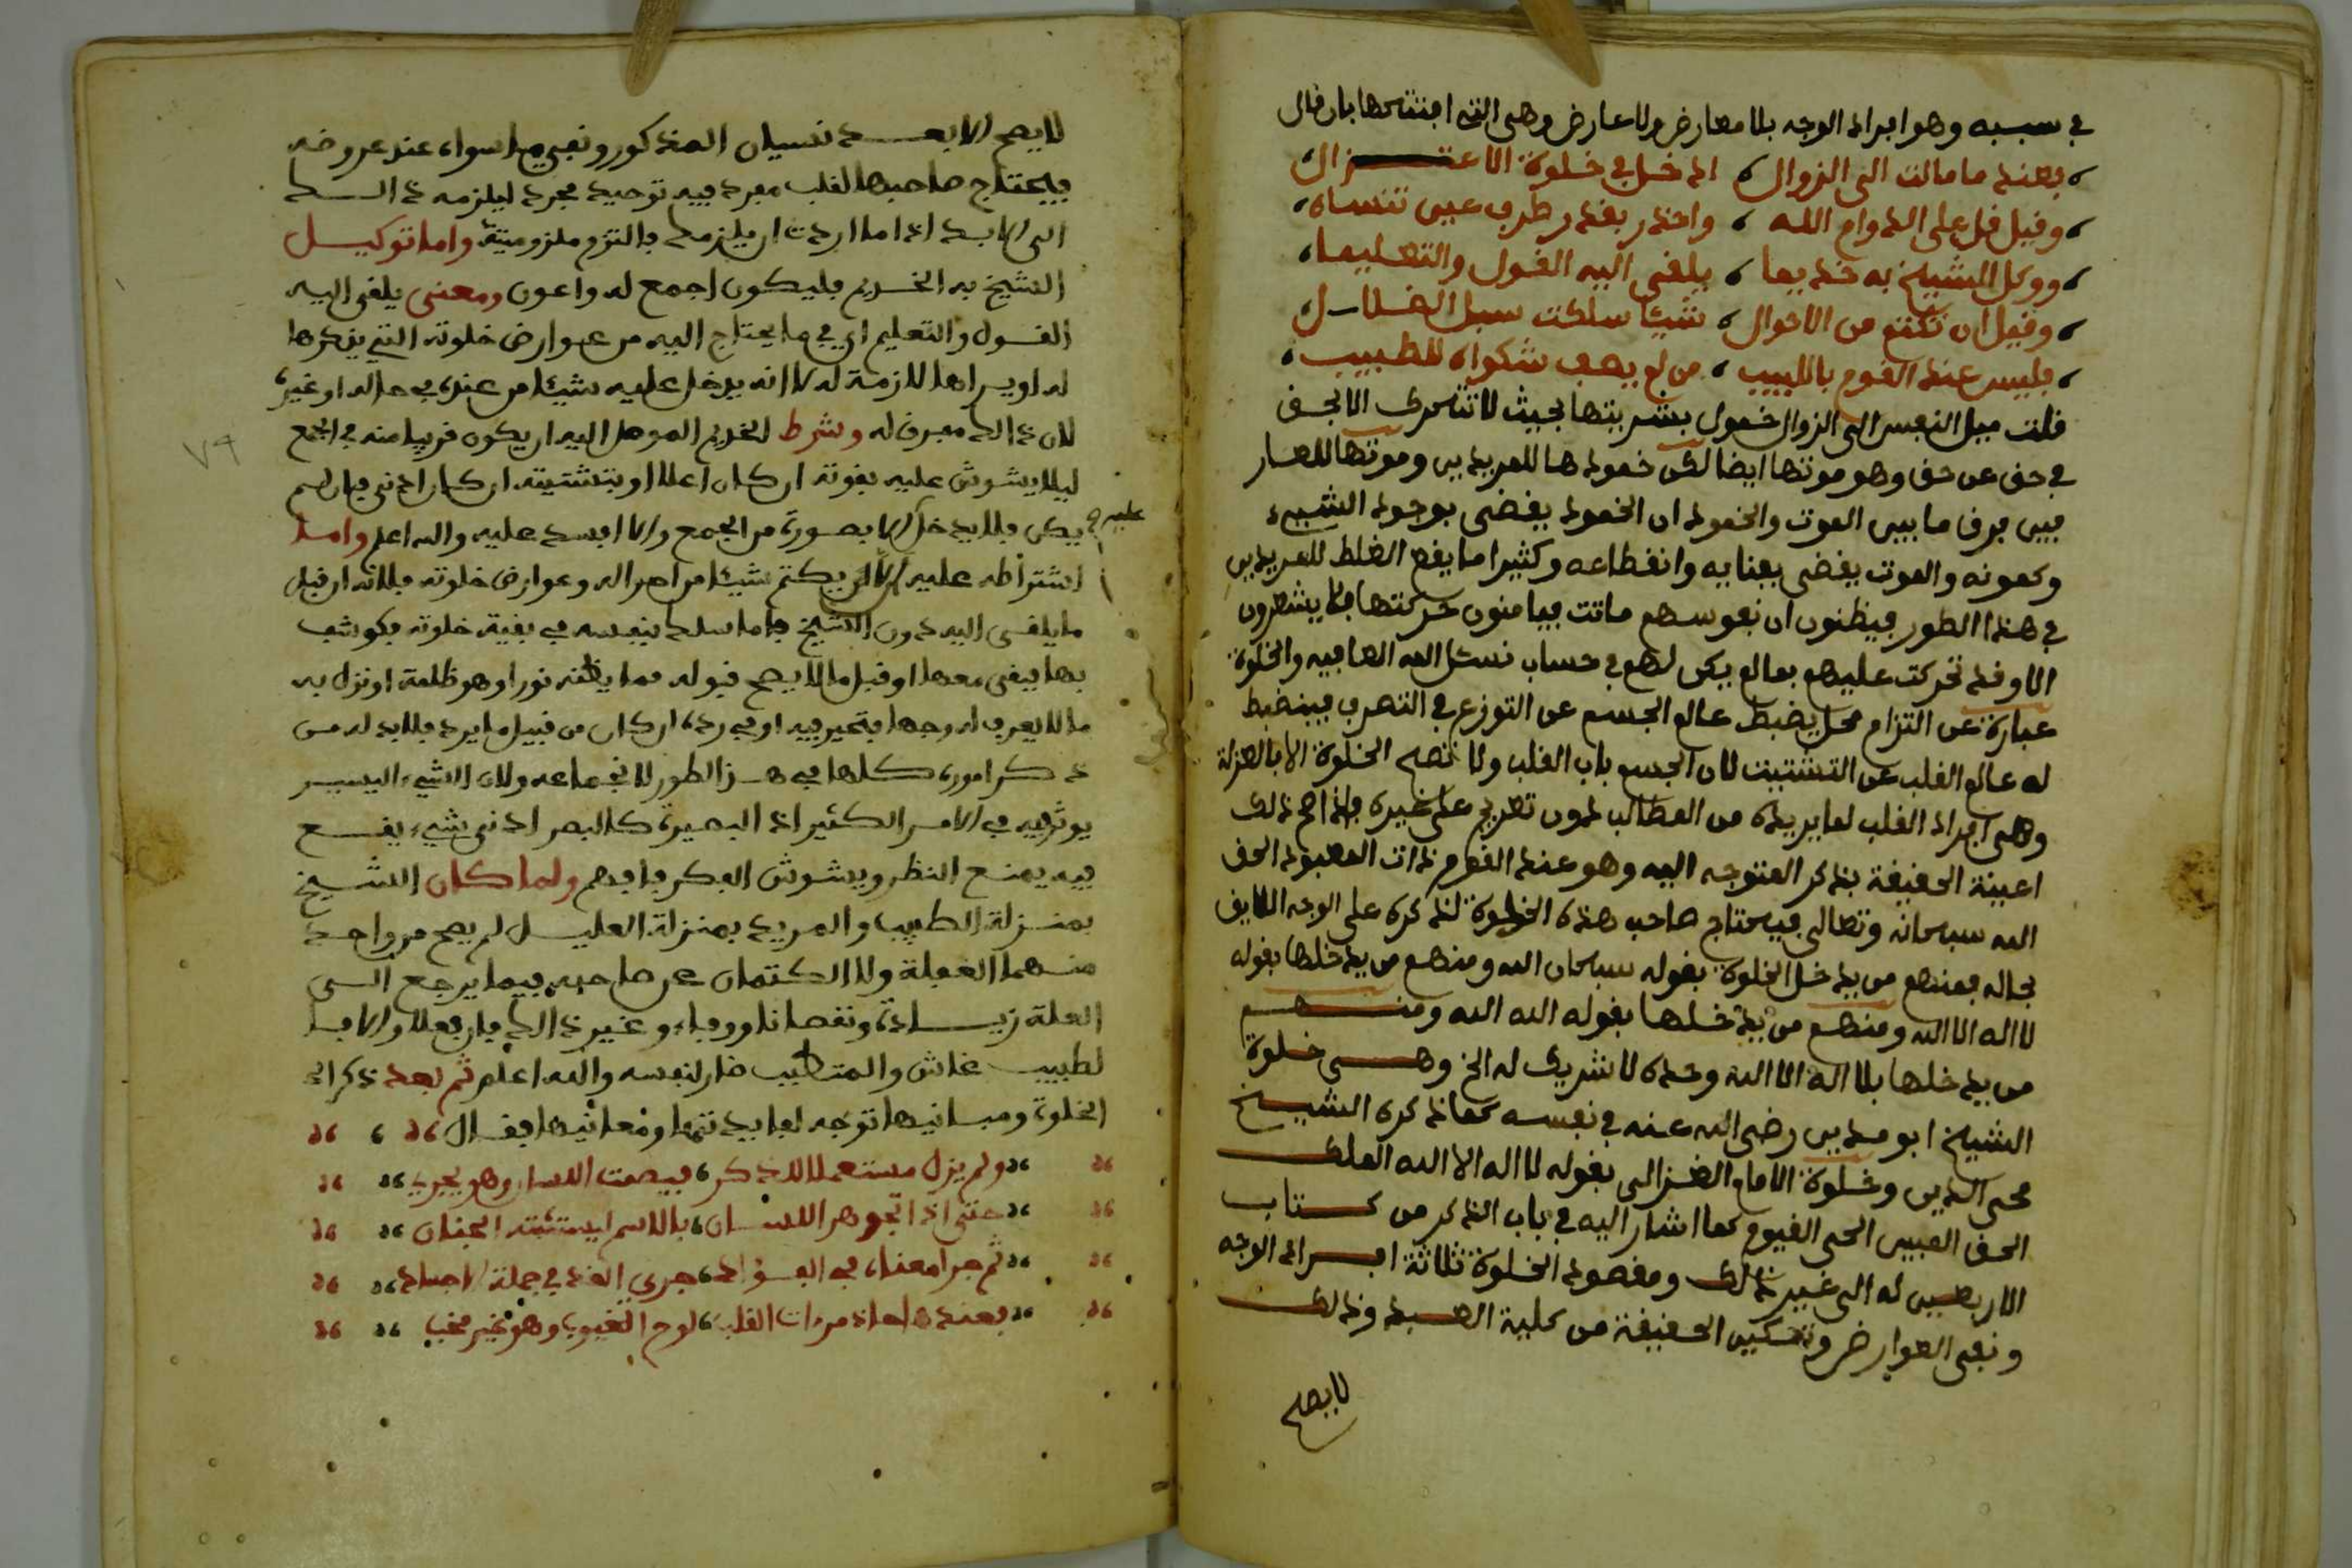 في سببه وهو افراد الوجه بلا معارض ولا عارض وهي التي افتتحها بان قال
فعند ما مالت الى الزوال ادخل في خلوة الاعتزال
وقيل قل على الدوام الله واحذر بقدر طرف عين تنساه
ووكل الشيخ به خديما يلقي اليه القول والتعليما
وقيل ان تكتم من الاحوال شيئا سلكت سبل الضلال
فليس عند القوم باللبيب من لم يصف شكواه للطبيب
قلت ميل النفس الى الزوال خمول بشريتها بحيث لا تتحرى الا بحق
في حق عن حق وهو موتها ايضا لكن خمودها للمريدين وموتها للعار
فبين فرق ما بين الموت والخمود ان الخمود يقضي بوجود الشيء
وكمونه والموت يقضي بفنايه وانقطاعه وكثيرا ما يقع الغلط للمريدين
في هذا الطور فيظنون ان نفوسهم ماتت فيامنون حركتها فلا يشعرون
الا وقد تحركت عليهم بما لم يكن لهم في حساب نسئل الله العافيه والخلوة
عبارة عن التزام محل يضبط عالم الجسم عن التوزع في التصرف فينضبط
له عالم القلب عن التشتيت لان الجسم باب القلب ولا تصح الخلوة الا بالعزلة
وهي افراد القلب لما يريده من المطالب دون تعريج على غيره فاذا صح ذلك
اعينة الحقيقة بذكر المتوجه اليه وهو عند القوم ذات المعبود الحق
الله سبحانه وتعالى فيحتاج صاحب هذه الخلوة لذكره على الوجه اللايق
بحاله فمنهم من يدخل الخلوة بقوله سبحان الله ومنهم من يدخلها بقوله
لا اله الا الله ومنهم من يدخلها بقوله الله الله ومنهم
من يدخلها بلا اله الا الله وحده لا شريك له الخ وهي خلوة
الشيخ ابو مدين رضي الله عنه في نفسه كما ذكره الشيخ
محي الدين وخلوة الامام الغزالي بقوله لا اله الا الله الملك
الحق المبين الحي القيوم كما اشار اليه في باب الذكر من كتاب
الاربعين له الى غير ذلك ومقصود الخلوة ثلاثة افراد الوجه
ونفي العوارض وتمكين الحقيقة من كلية العبد وذلك
لا يصح
لا يصح الا بعد نسيان المذكور ونفي ما سواه عند عروضه
فيحتاج صاحبها لقلب مفرد فيه توحيد مجرد ليلزمه ذالك
الى الابد اذا ما اردت ان يلزمك فالتزم ملزوميته واما توكيل
الشيخ به الخديم فليكون اجمع له واعون ومعنى يلقي اليه
القول والتعليم اي في ما يحتاج اليه من عوارض خلوته التي يذكرها
له او يراها لازمة له لا انه يدخل عليه شيئا من عنده في حاله او غيره
لان ذالك مفرق له وشرط الخديم الموصل اليه ان يكون قريبا منه في الجمع
ليلا يشوش عليه بقوته ان كان اعلا او بتشتيته ان كان ادنى فان لم
يكن فلا يدخل عليه الا بصورة من الجمع والا افسد عليه والله اعلم واما
اشتراطه عليه الا يكتم شيئا من احواله وعوارض خلوته فلانه ان قبل
ما يلقى اليه دون الشيخ فاما سلك بنفسه في بقية خلوته فكوشف
بها فبقي معها او قبل ما لا يصح قبوله مما يظنه نورا وهو ظلمة او نزل به
ما لا يعرف له وجها فتحير فيه او في رده ان كان من قبيل ما يرد فلا بد له من
ذكر اموره كلها في هذا الطور لانجماعه ولان الشيء اليسير
يوثر فيه في الامر الكثير اذ البصيرة كالبصر ادنى شيء يقع
فيه يمنع النظر ويشوش الفكر فافهم ولما كان الشيخ
بمنزلة الطبيب والمريد بمنزلة العليل لم يصح من واحد
منهما الغفلة ولا الكتمان عن صاحبه فيما يرجع الى
العلة زيادة ونقصانا ووفاء وغير ذالك فان فعلا والا فا
لطبيب غاش والمتطبب ضار لنفسه والله اعلم ثم بعد ذكر ال
الخلوة ومبانيها توجه لفايدتها ومعانيها فقال
ولم يزل مستعملا للذكر فيصمت اللسان وهو يجري
حتى اذا تجوهر اللسان بالاسم يستثبته الجنان
ثم جرا معناه في الفؤاد جري الغذ في جملة الاجساد
فعندها حاذ مرءات القلب لوح الغيوب وهو غير مخب